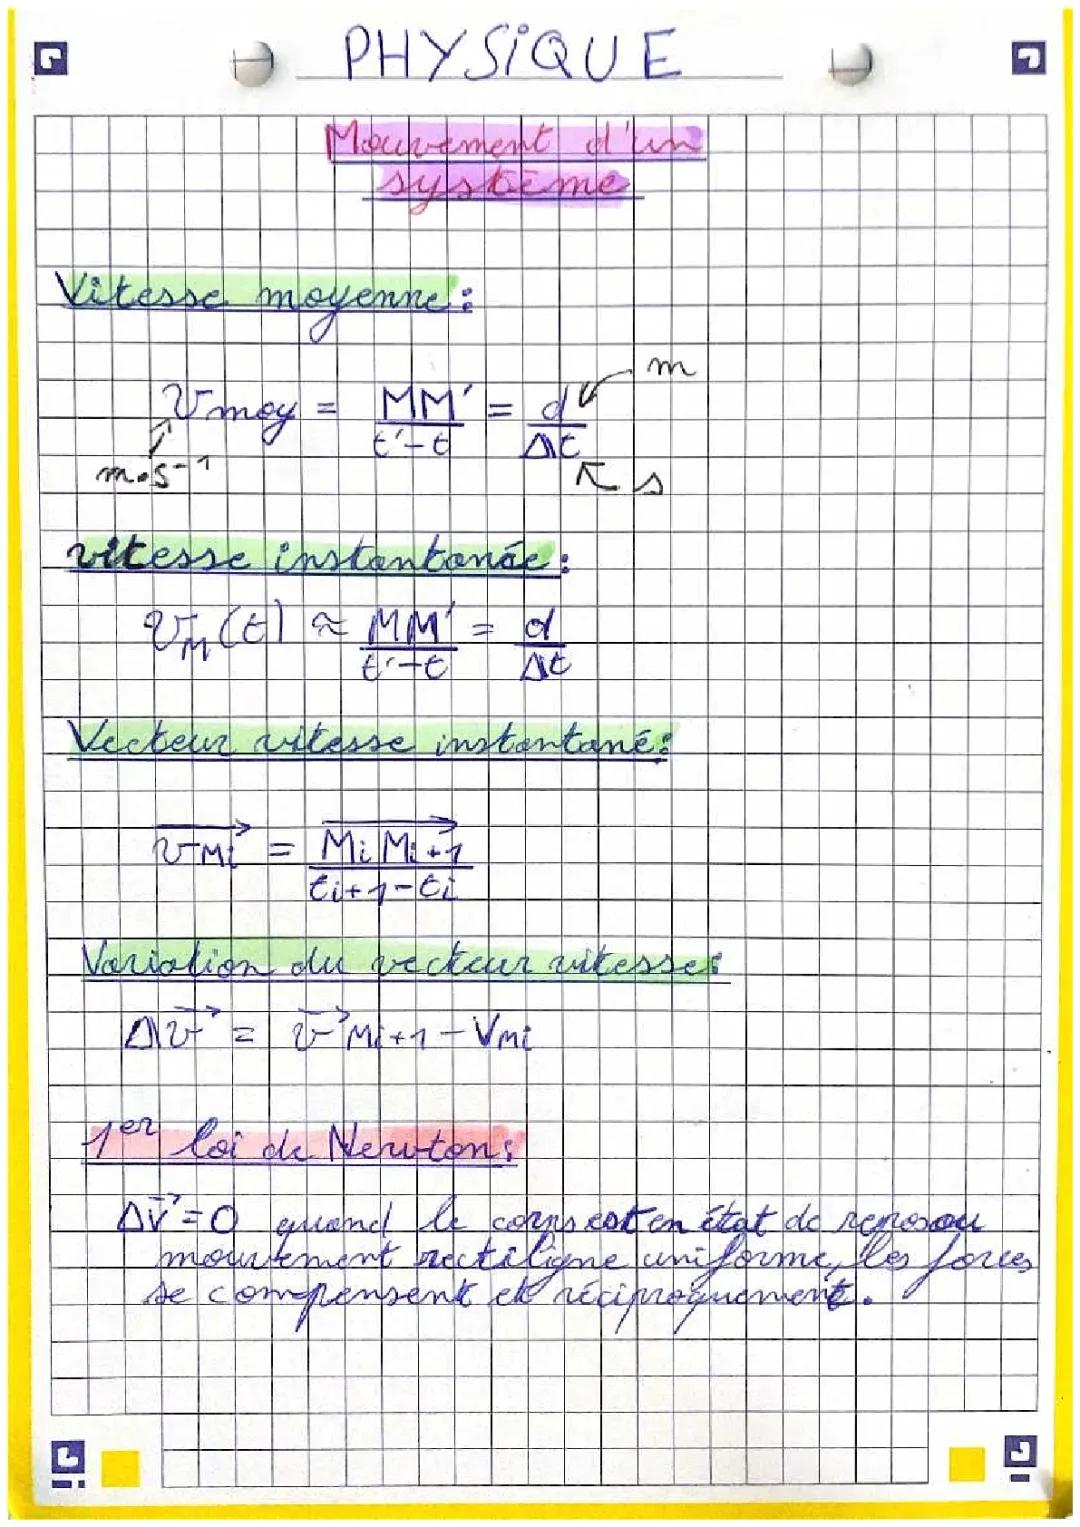 PHYSiQUE
Mouvement d'un
système
Vitesse moyenne :
m
Vmoy = MM' / t'-t = d / Δt
m.s-1
s
vitesse instantanée :
vM (t) ≈ MM' / t'-t = d / Δt
Vecteur vitesse instantané :
→vMi = →MiMi+1 / ti+1-ti
Variation du vecteur vitesse :
Δ→v = →v Mi+1 - VMi
1er loi de Newton :
Δ→v = 0 quand le corps est en état de repos ou
mouvement rectiligne uniforme, les forces
se compensent et réciproquement.